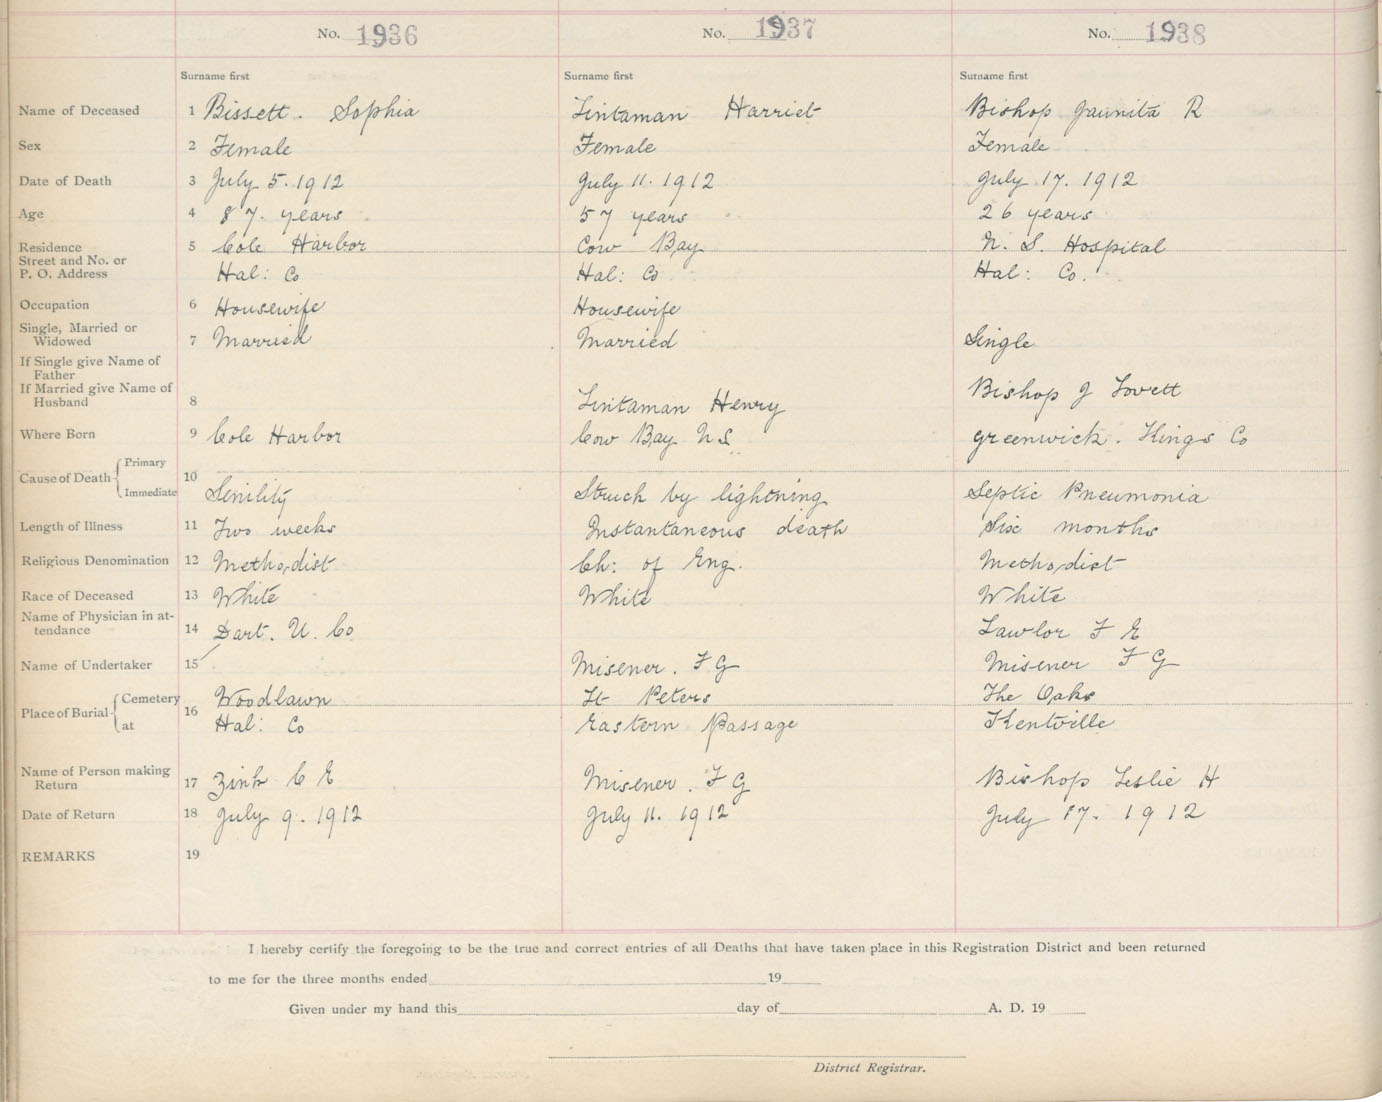 No. 1936 No. 1937 No. 1938
Surname first Surname first Surname first
Name of Deceased 1 Bissett. Sophia Lintaman Harriet Bishop Jaunita R
Sex 2 Female Female Female
Date of Death 3 July 5. 1912 July 11. 1912 July 17. 1912
Age 4 87. years 57 years 26 years
Residence 5 Cole Harbor Cow Bay N. S. Hospital
Street and No. or
P. O. Address Hal: Co Hal: Co Hal: Co.
Occupation 6 Housewife Housewife
Single, Married or
Widowed 7 Married Married Single
If Single give Name of
Father
If Married give Name of Bishop J Lovett
Husband 8 Lintaman Henry
Where Born 9 Cole Harbor Cow Bay N S Greenwick. Kings Co
Primary
Cause of Death 10
Immediate Senility Struck by lightning Septic Pneumonia
Length of Illness 11 Two weeks Instantaneous death Six months
Religious Denomination 12 Methodist Ch: of Eng. Methodist
Race of Deceased 13 White White White
Name of Physician in at-
tendance 14 Dart. U. Co Lawlor F E
Name of Undertaker 15 Misener. F G Misener F G
Cemetery Woodlawn St Peters The Oaks
Place of Burial 16
at Hal: Co Eastern Passage Kentville
Name of Person making
Return 17 Zink C E Misener. F G Bishop Leslie H
Date of Return 18 July 9. 1912 July 11. 1912 July 17. 1912
REMARKS 19
I hereby certify the foregoing to be the true and correct entries of all Deaths that have taken place in this Registration District and been returned
to me for the three months ended 19
Given under my hand this day of A. D. 19
District Registrar.